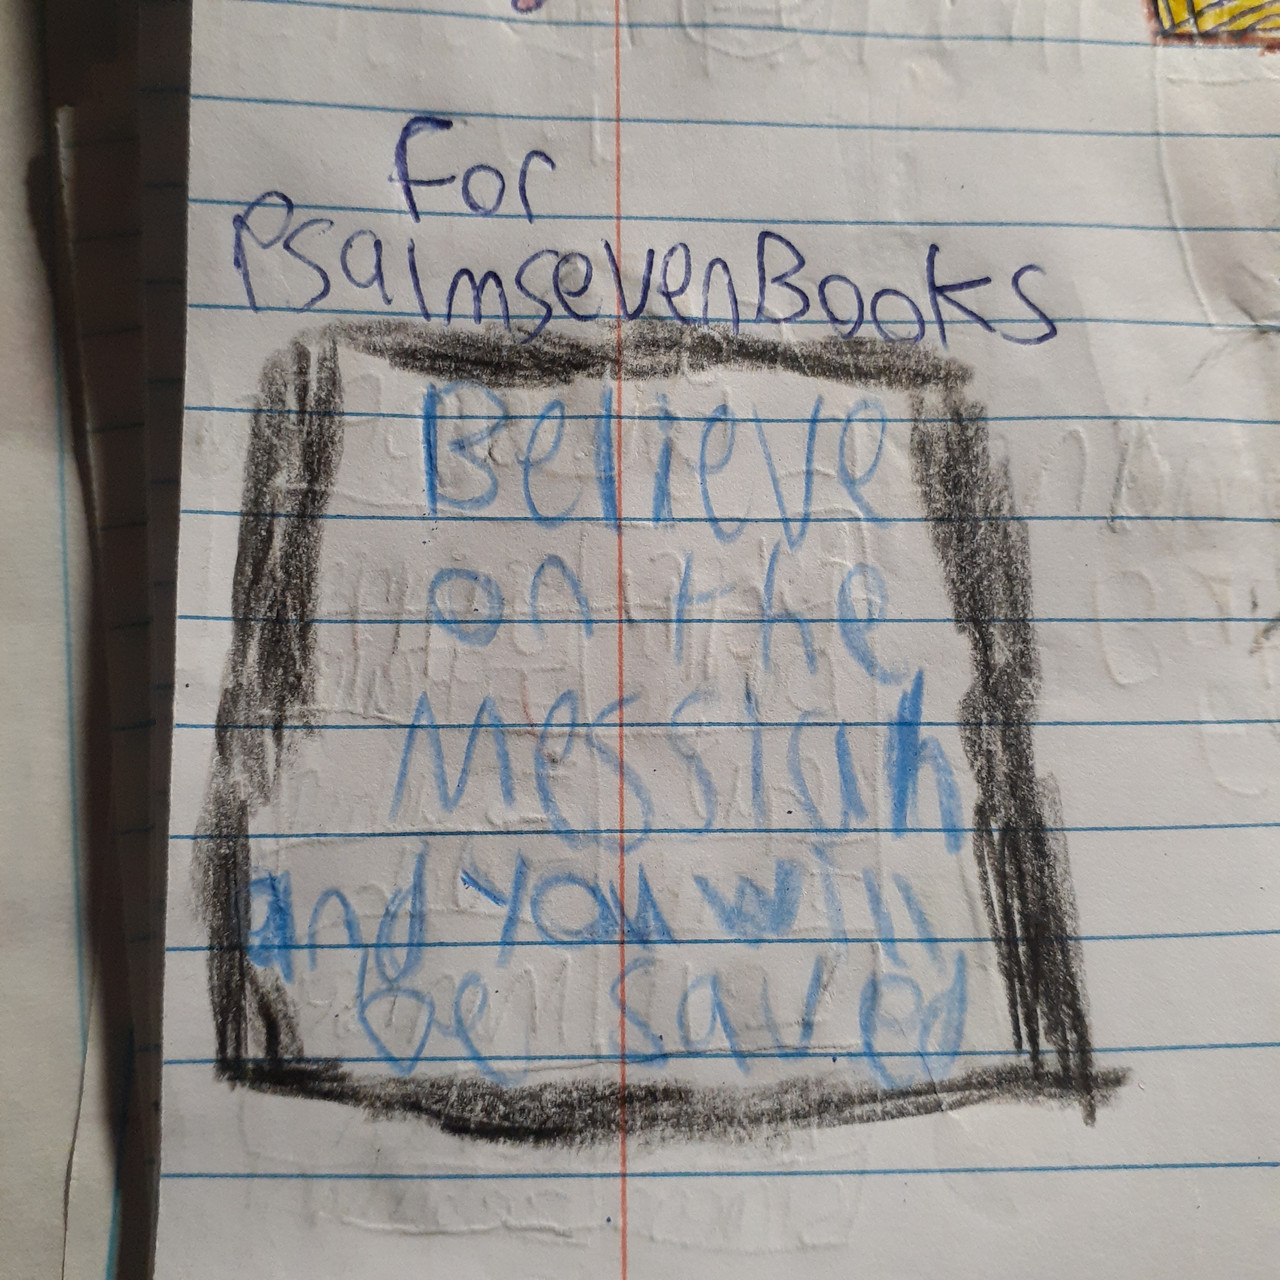 For
PsalmsevenBooks
Believe
on the
Messiah
and you will
be saved